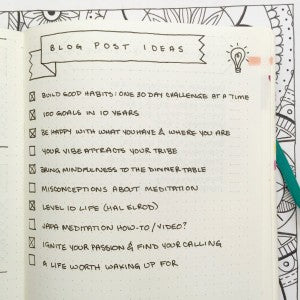 BLOG POST IDEAS
BUILD GOOD HABITS: ONE 30 DAY CHALLENGE AT A TIME
100 GOALS IN 10 YEARS
BE HAPPY WITH WHAT YOU HAVE & WHERE YOU ARE
YOUR VIBE ATTRACTS YOUR TRIBE
BRING MINDFULNESS TO THE DINNER TABLE
MISCONCEPTIONS ABOUT MEDITATION
LEVEL 10 LIFE (HAL ELROD)
JAPA MEDITATION HOW-TO / VIDEO?
IGNITE YOUR PASSION & FIND YOUR CALLING
A LIFE WORTH WAKING UP FOR